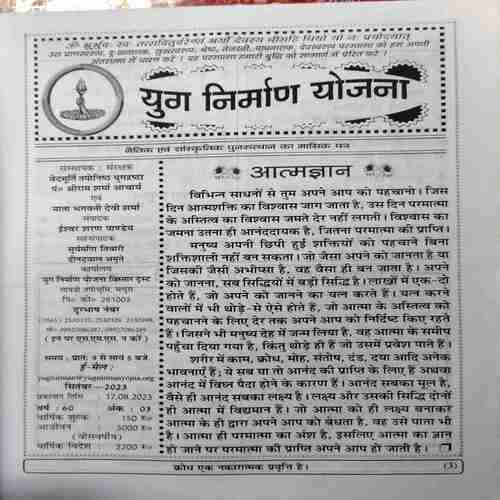 ॐ भूर्भुवः स्वः तत्सवितुर्वरेण्यं भर्गो देवस्य धीमहि धियो यो नः प्रचोदयात्
उस प्राणस्वरूप, दुःखनाशक, सुखस्वरूप, श्रेष्ठ, तेजस्वी, पापनाशक, देवस्वरूप परमात्मा को हम अपनी
अंतरात्मा में धारण करें। वह परमात्मा हमारी बुद्धि को सन्मार्ग में प्रेरित करे।
युग निर्माण योजना
नैतिक एवं सांस्कृतिक पुनरुत्थान का मासिक पत्र
संस्थापक : संरक्षक
वेदमूर्ति तपोनिष्ठ युगद्रष्टा
पं० श्रीराम शर्मा आचार्य
एवं
माता भगवती देवी शर्मा
संपादक
ईश्वर शरण पाण्डेय
सहसंपादक
सूर्यमणि तिवारी
दीनदयाल अमृते
कार्यालय
युग निर्माण योजना विस्तार ट्रस्ट
गायत्री तपोभूमि, मथुरा
पि० को० 281003
दूरभाष नंबर
( इन पर एस.एम.एस. न करें )
समय : प्रातः 9 से सायं 5 बजे
ई-मेल :
yugnirman@yugnirmanyojna.org
सितंबर - 2023
प्रकाशन तिथि 17.08.2023
वर्ष : 60 अंक : 03
वार्षिक शुल्क : 150 रु०
आजीवन : 3000 रु०
(बीसवर्षीय)
वार्षिक विदेश : 2200 रु०
आत्मज्ञान
विभिन्न साधनों से तुम अपने आप को पहचानो। जिस
दिन आत्मशक्ति का विश्वास जाग जाता है, उस दिन परमात्मा
के अस्तित्व का विश्वास जमते देर नहीं लगती। विश्वास का
जमना उतना ही आनंददायक है, जितना परमात्मा की प्राप्ति।
मनुष्य अपनी छिपी हुई शक्तियों को पहचाने बिना
शक्तिशाली नहीं बन सकता। जो जैसा अपने को जानता है या
जिसकी जैसी अभीप्सा है, वह वैसा ही बन जाता है। अपने
को जानना, सब सिद्धियों में बड़ी सिद्धि है। लाखों में एक-दो
होते हैं, जो अपने को जानने का यत्न करते हैं। यत्न करने
वालों में भी थोड़े-से ऐसे होते हैं, जो आत्मा के अस्तित्व को
पहचानने के लिए देर तक अपने आप को निर्दिष्ट किए रहते
हैं। जिसने भी मनुष्य देह में जन्म लिया है, वह आत्मा के समीप
पहुँचा दिया गया है, किंतु थोड़े ही हैं जो उसमें प्रवेश पाते हैं।
शरीर में काम, क्रोध, मोह, संतोष, दंड, दया आदि अनेक
भावनाएँ हैं; ये सब या तो आनंद की प्राप्ति के लिए हैं अथवा
आनंद में विघ्न पैदा होने के कारण हैं। आनंद सबका मूल है,
वैसे ही आनंद सबका लक्ष्य है। लक्ष्य और उसकी सिद्धि दोनों
ही आत्मा में विद्यमान हैं। जो आत्मा को ही लक्ष्य बनाकर
आत्मा के ही द्वारा अपने आप को बेधता है, वह उसे पाता भी
है। आत्मा ही परमात्मा का अंश है, इसलिए आत्मा का ज्ञान
हो जाने पर परमात्मा की प्राप्ति अपने आप हो जाती है।
क्रोध एक नकारात्मक प्रवृत्ति है। (3)